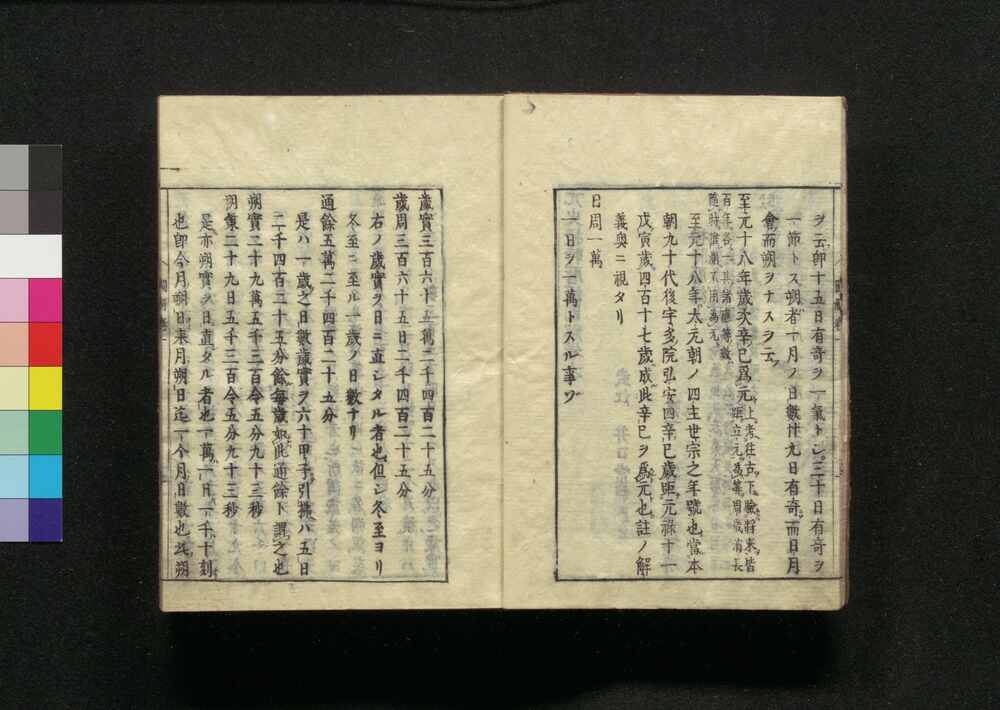 ヲ云即十五日有奇ヲ一氣トシ三十日有奇ヲ
一節トス朔者一月ノ日數廿九日有奇而日月
會而朔ヲナスヲ云
至元十八年歲次辛巳爲元上考徃古下驗將來皆
距立元爲筭周歲消長
百年各一其諸應等數
隨時推測不用爲元
至元十八年大元朝ノ四主世宗之年號也當本
朝九十代後宇多院弘安四辛巳歲距元祿十一
戊寅歲四百十七歲成此辛巳ヲ爲元也註ノ解
義奧ニ視タリ
日周一萬
一日ヲ一萬トスル事
歲實三百六十五萬二千四百二十五分
歲周三百六十五日二千四百二十五分
右ノ歲實ヲ日ニ直シタル者也但シ冬至ヨリ
冬至ニ至ル一歲ノ日數ナリ
通餘五萬二千四百二十五分
是ハ一歲之日數歲實ヲ六十甲子引捨ハ五日
二千四百二十五分餘每歲如此通餘ト謂之也
朔實二十九萬五千三百令五分九十三秒
朔策二十九日五千三百令五分九十三秒
是亦朔實ヲ日直タル者也一萬一日一千十刻
也即今月朔日来月朔日迄一今月日數也朔